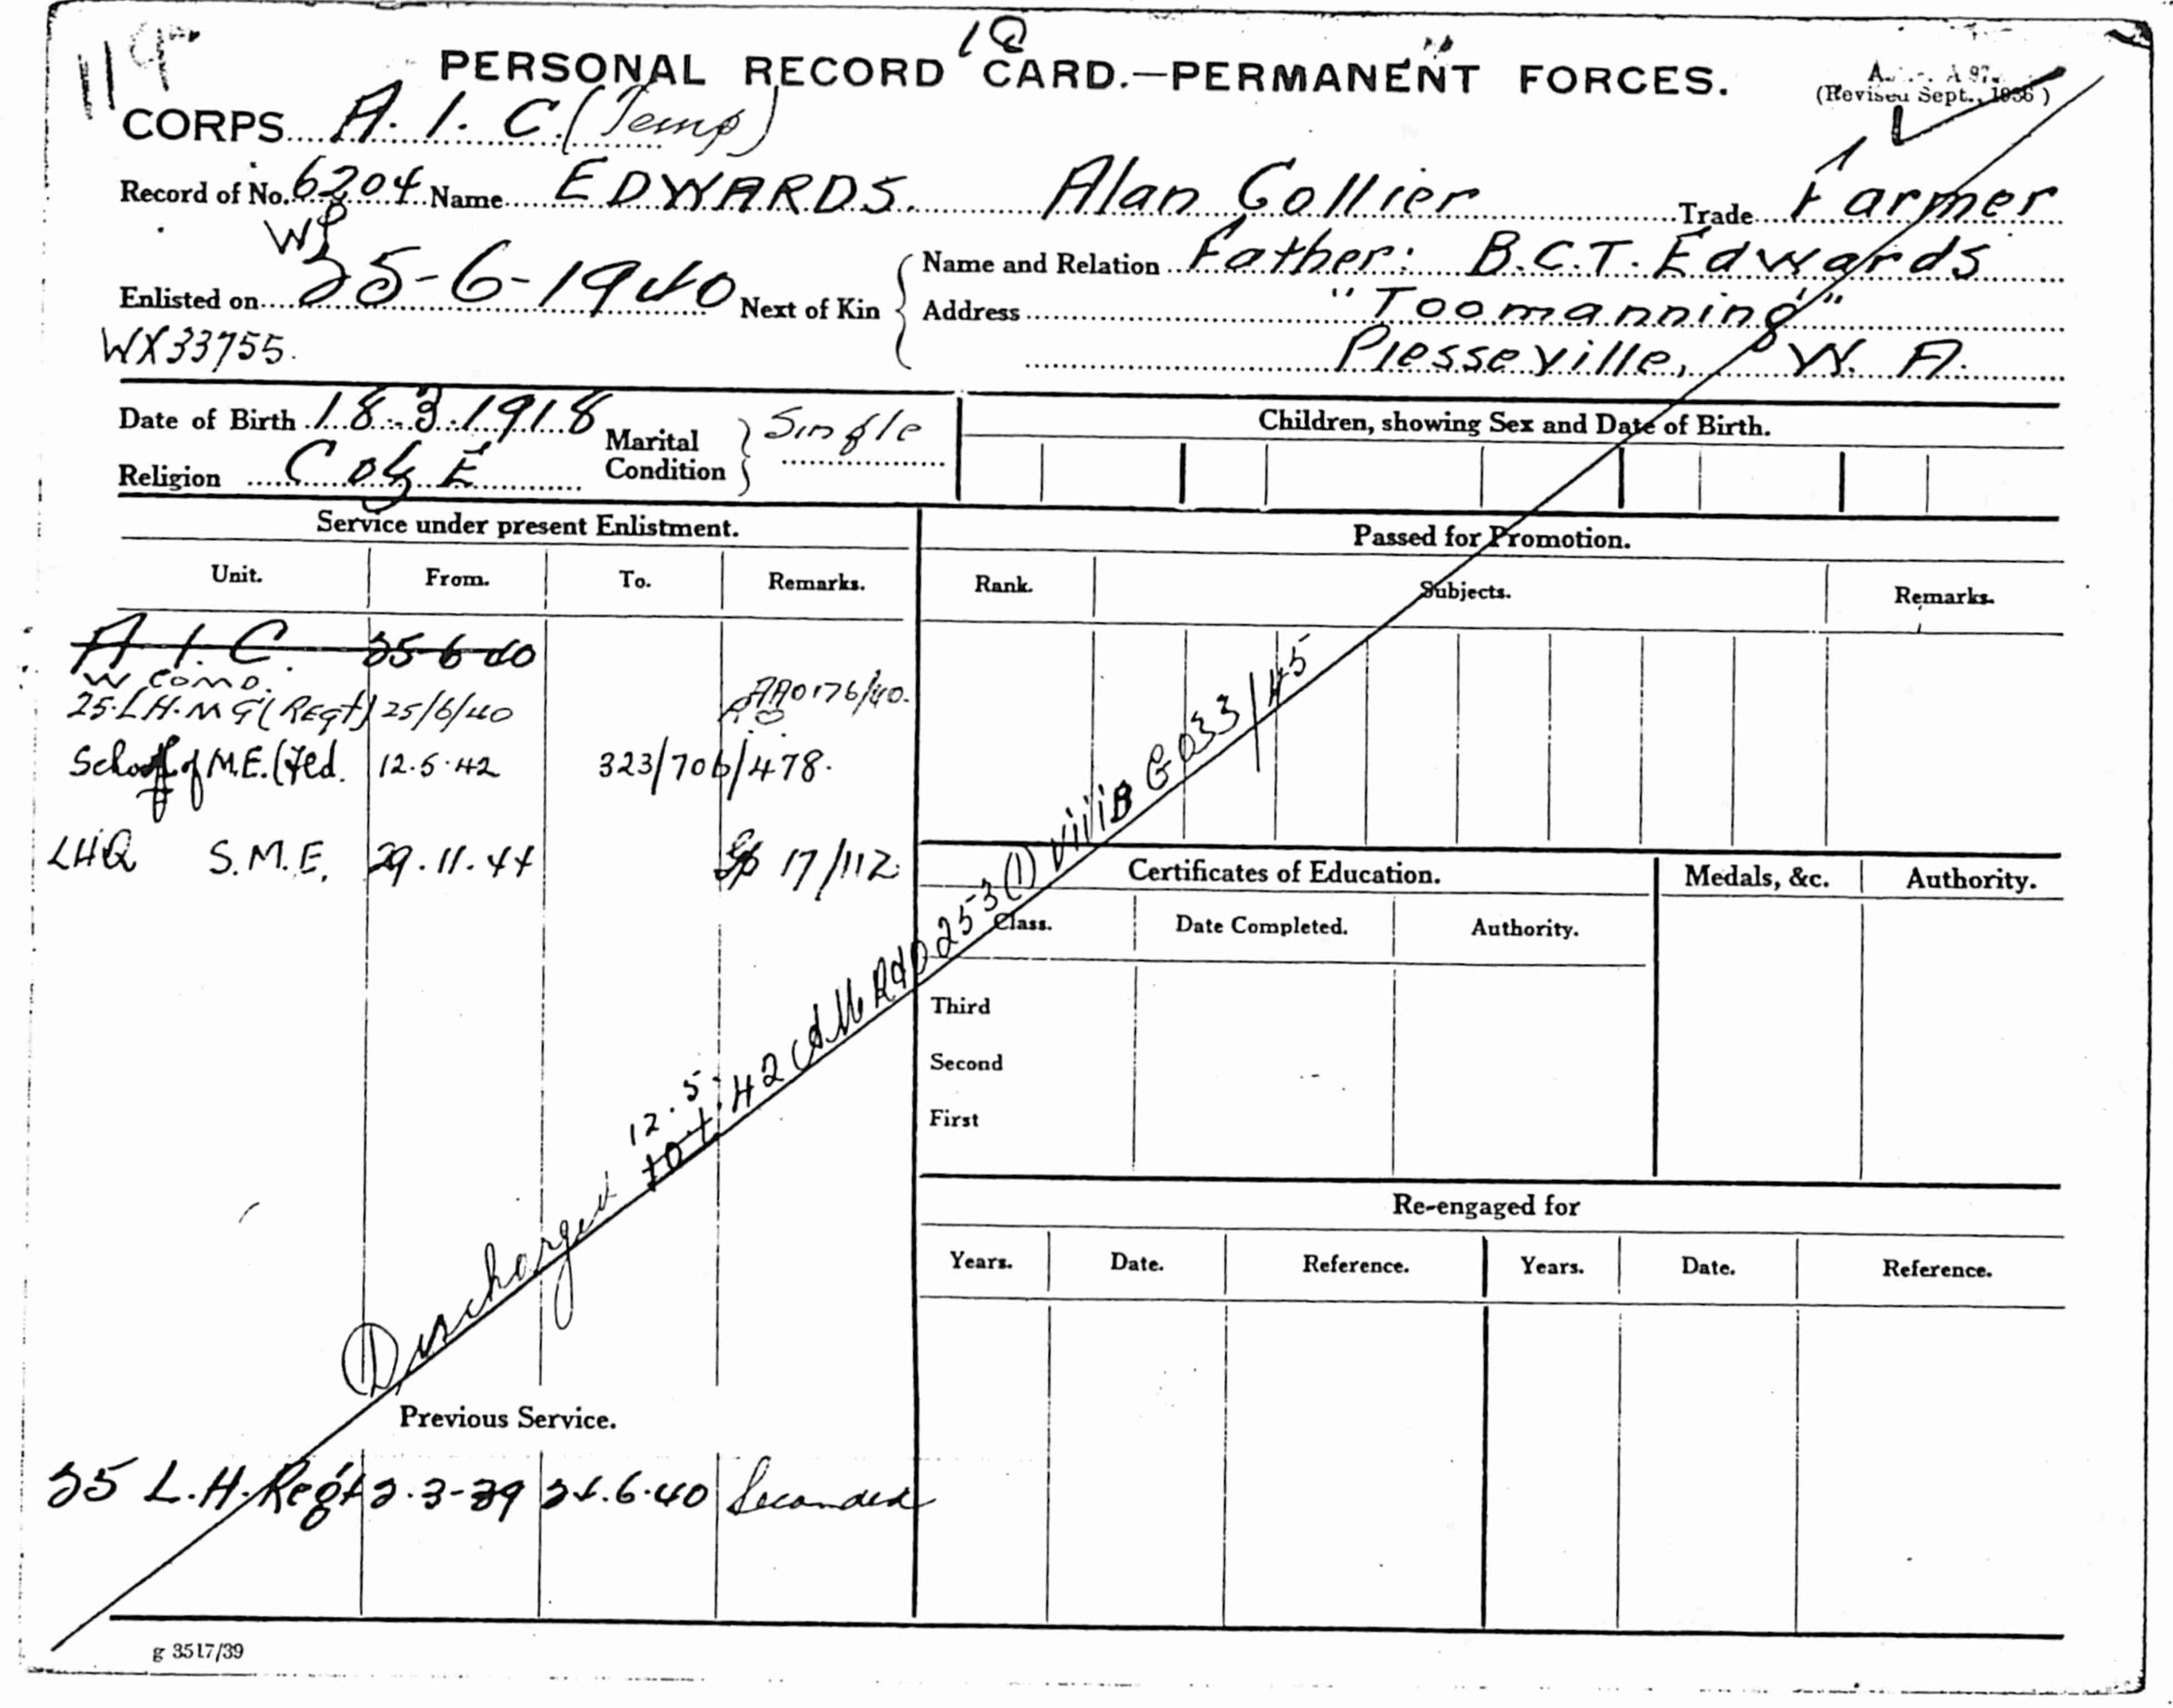 119
18
PERSONAL RECORD CARD.—PERMANENT FORCES.
(Revised Sept., 1936)
CORPS A. I. C. (Temp)
Record of No. 6204 Name EDWARDS. Alan Collier Trade Farmer
WP
Enlisted on 25-6-1940 Next of Kin Name and Relation Father: B.C.T. Edwards
Address "Toomanning"
WX33755. Piesseville, W. A.
Date of Birth 18.3.1918 Marital Condition Single Children, showing Sex and Date of Birth.
Religion C of E
Service under present Enlistment. Passed for Promotion.
Unit. From. To. Remarks. Rank. Subjects. Remarks.
A. I. C. 25-6-40
W COMD.
25. L.H.M G (Regt) 25/6/40 AAO176/40.
School of M.E. 12.5.42 323/706/478.
LHQ S.M.E. 29.11.44 17/112
Certificates of Education. Medals, &c. Authority.
Class. Date Completed. Authority.
Third
Second
First
Discharged 12.5.42 AMR&O 253 (1) viiiB G033/45
Re-engaged for
Years. Date. Reference. Years. Date. Reference.
Previous Service.
25 L.H. Regt 2.3-39 24.6.40 Seconded
g 3517/39